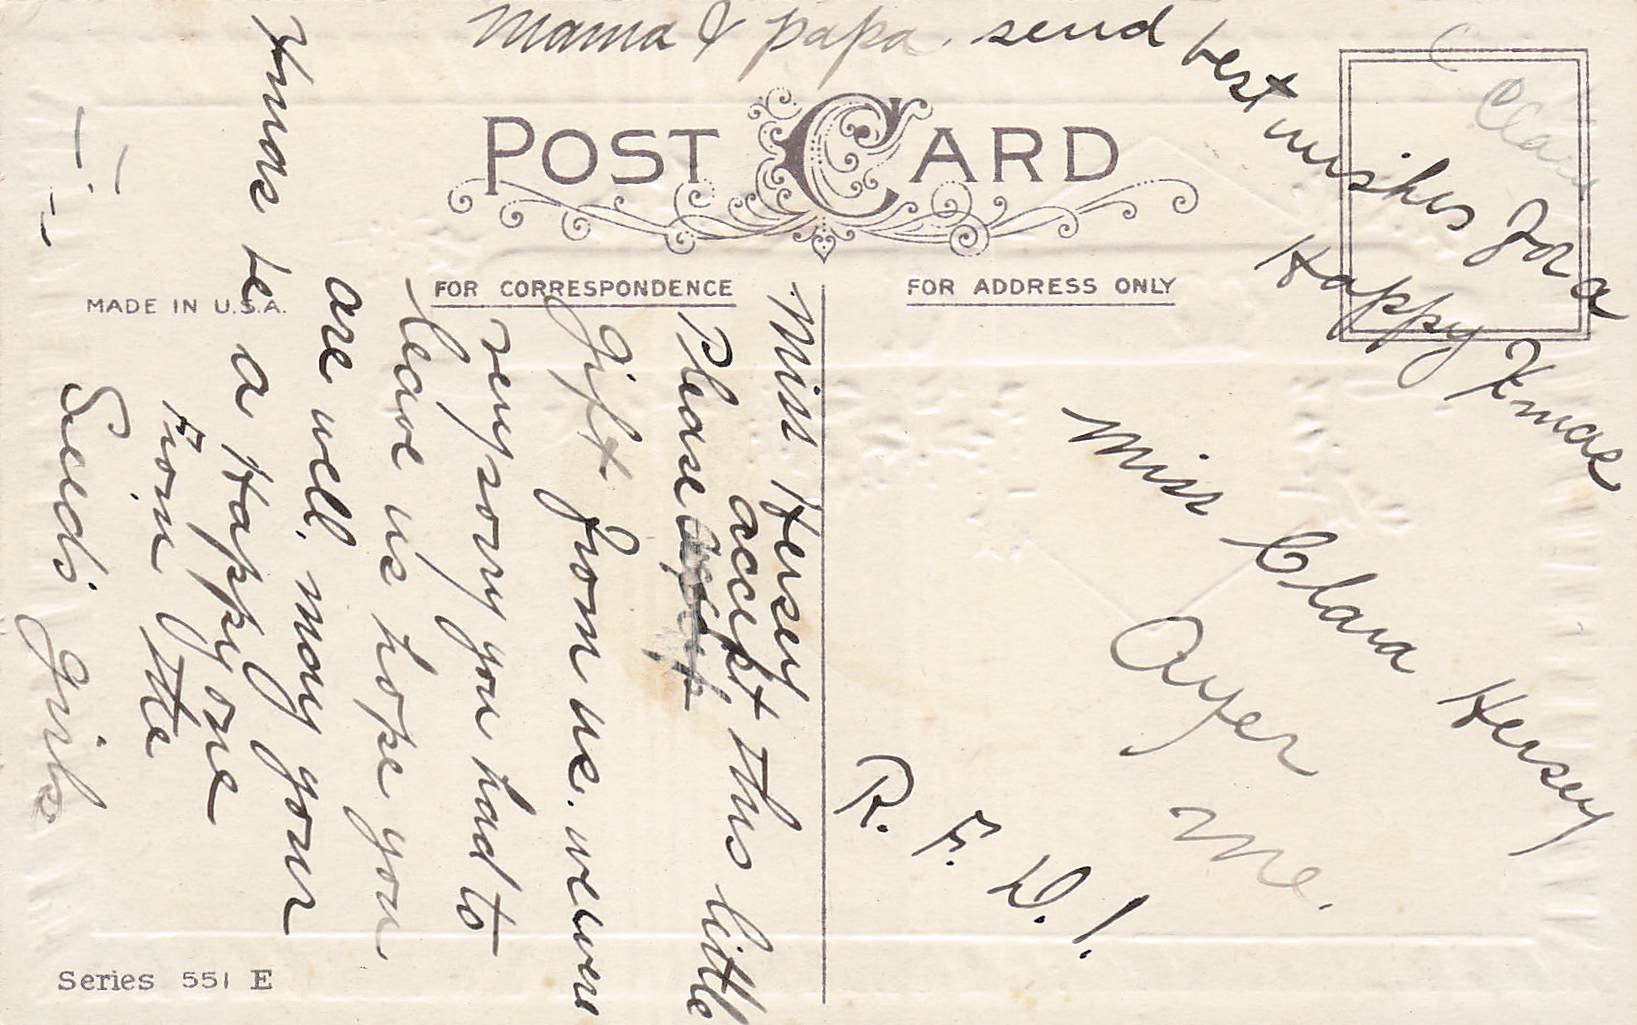 Mama & papa send best wishes for a
Happy Xmas
POST CARD
FOR CORRESPONDENCE
FOR ADDRESS ONLY
MADE IN U.S.A.
Miss Hersey
Please accept this little
gift from us. we were
very sorry you had to
leave us hope you
are well. may your
Xmas be a Happy one
From the
girls
Miss Clara Hersey
Ayer
Me.
R. F. D. 1.
Series 551 E